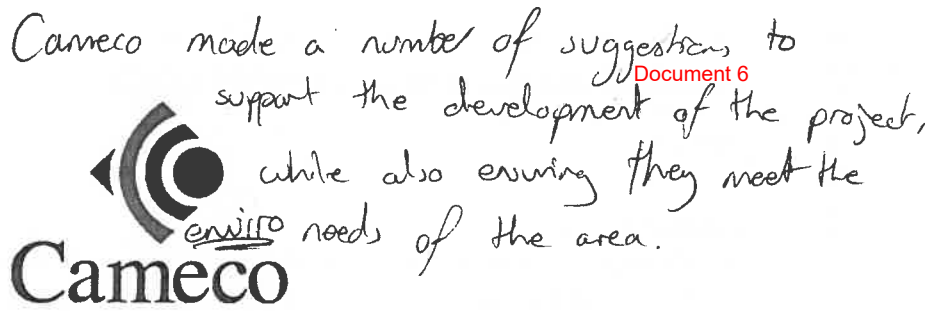 Cameco made a number of suggestions to
Document 6
support the development of the project,
while also ensuring they meet the
enviro needs of the area.
Cameco